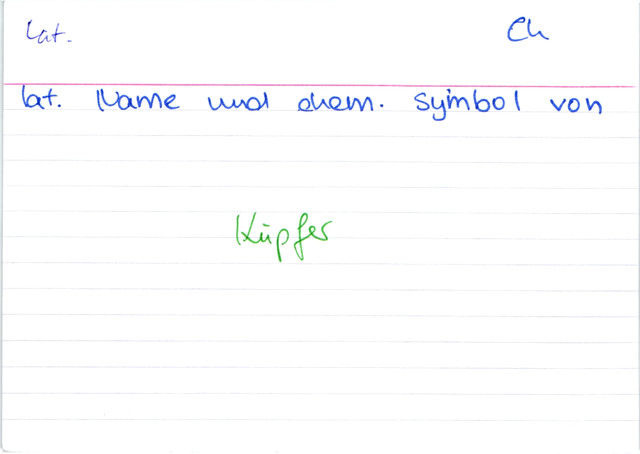 Lat. Ch
lat. Name und chem. Symbol von
Kupfer